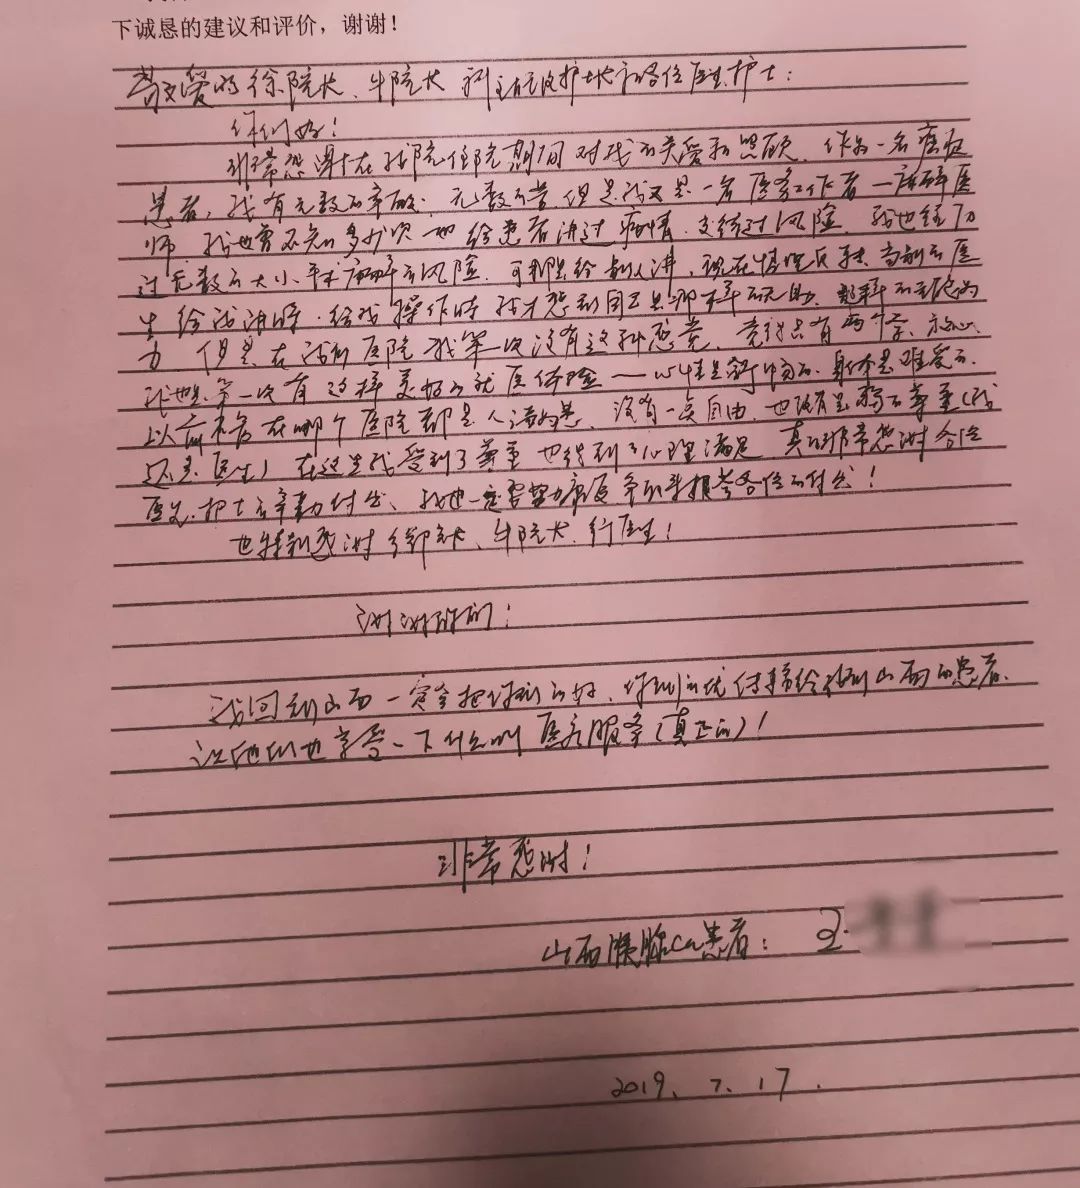 下诚恳的建议和评价，谢谢！
敬爱的徐院长、牛院长 护士长和各位医生护士：
你们好！
非常感谢在我院住院期间对我的关爱和照顾，作为一名癌症
患者，我有无数的辛酸，无数的苦，但是我又是一名医务工作者—麻醉医
师，我也曾不知多少次也给患者讲过病情，交待过风险，我也经历
过无数的大小手术麻醉的风险，可那是给别人讲，现在情况反转，当别的医
生给我讲时，给我操作时，我才感到自己是那样的无助，那样的
力，但是在 医院我第一次没有这种感觉，竟然只有两个字，放心，
我也是第一次有这样美好的就医体验—心情是舒畅的，身体是难受的，
以前不管在哪个医院都是人满为患，没有一点自由，也没有 尊重（我
还是医生）在这里我受到了尊重也得到了心理满足，真的非常感谢各位
医生、护士的辛勤付出、我也一定要努力康复，争取来报答各位的付出！
也特别感谢徐院长、牛院长、 医生！
谢谢你们！
我回到山西一定会把你们的好，你们的优 给我们山西的患者，
让他们也享受一下什么叫医疗服务（真正的）！
非常感谢！
山西胰腺ca患者：王
2019.7.17.